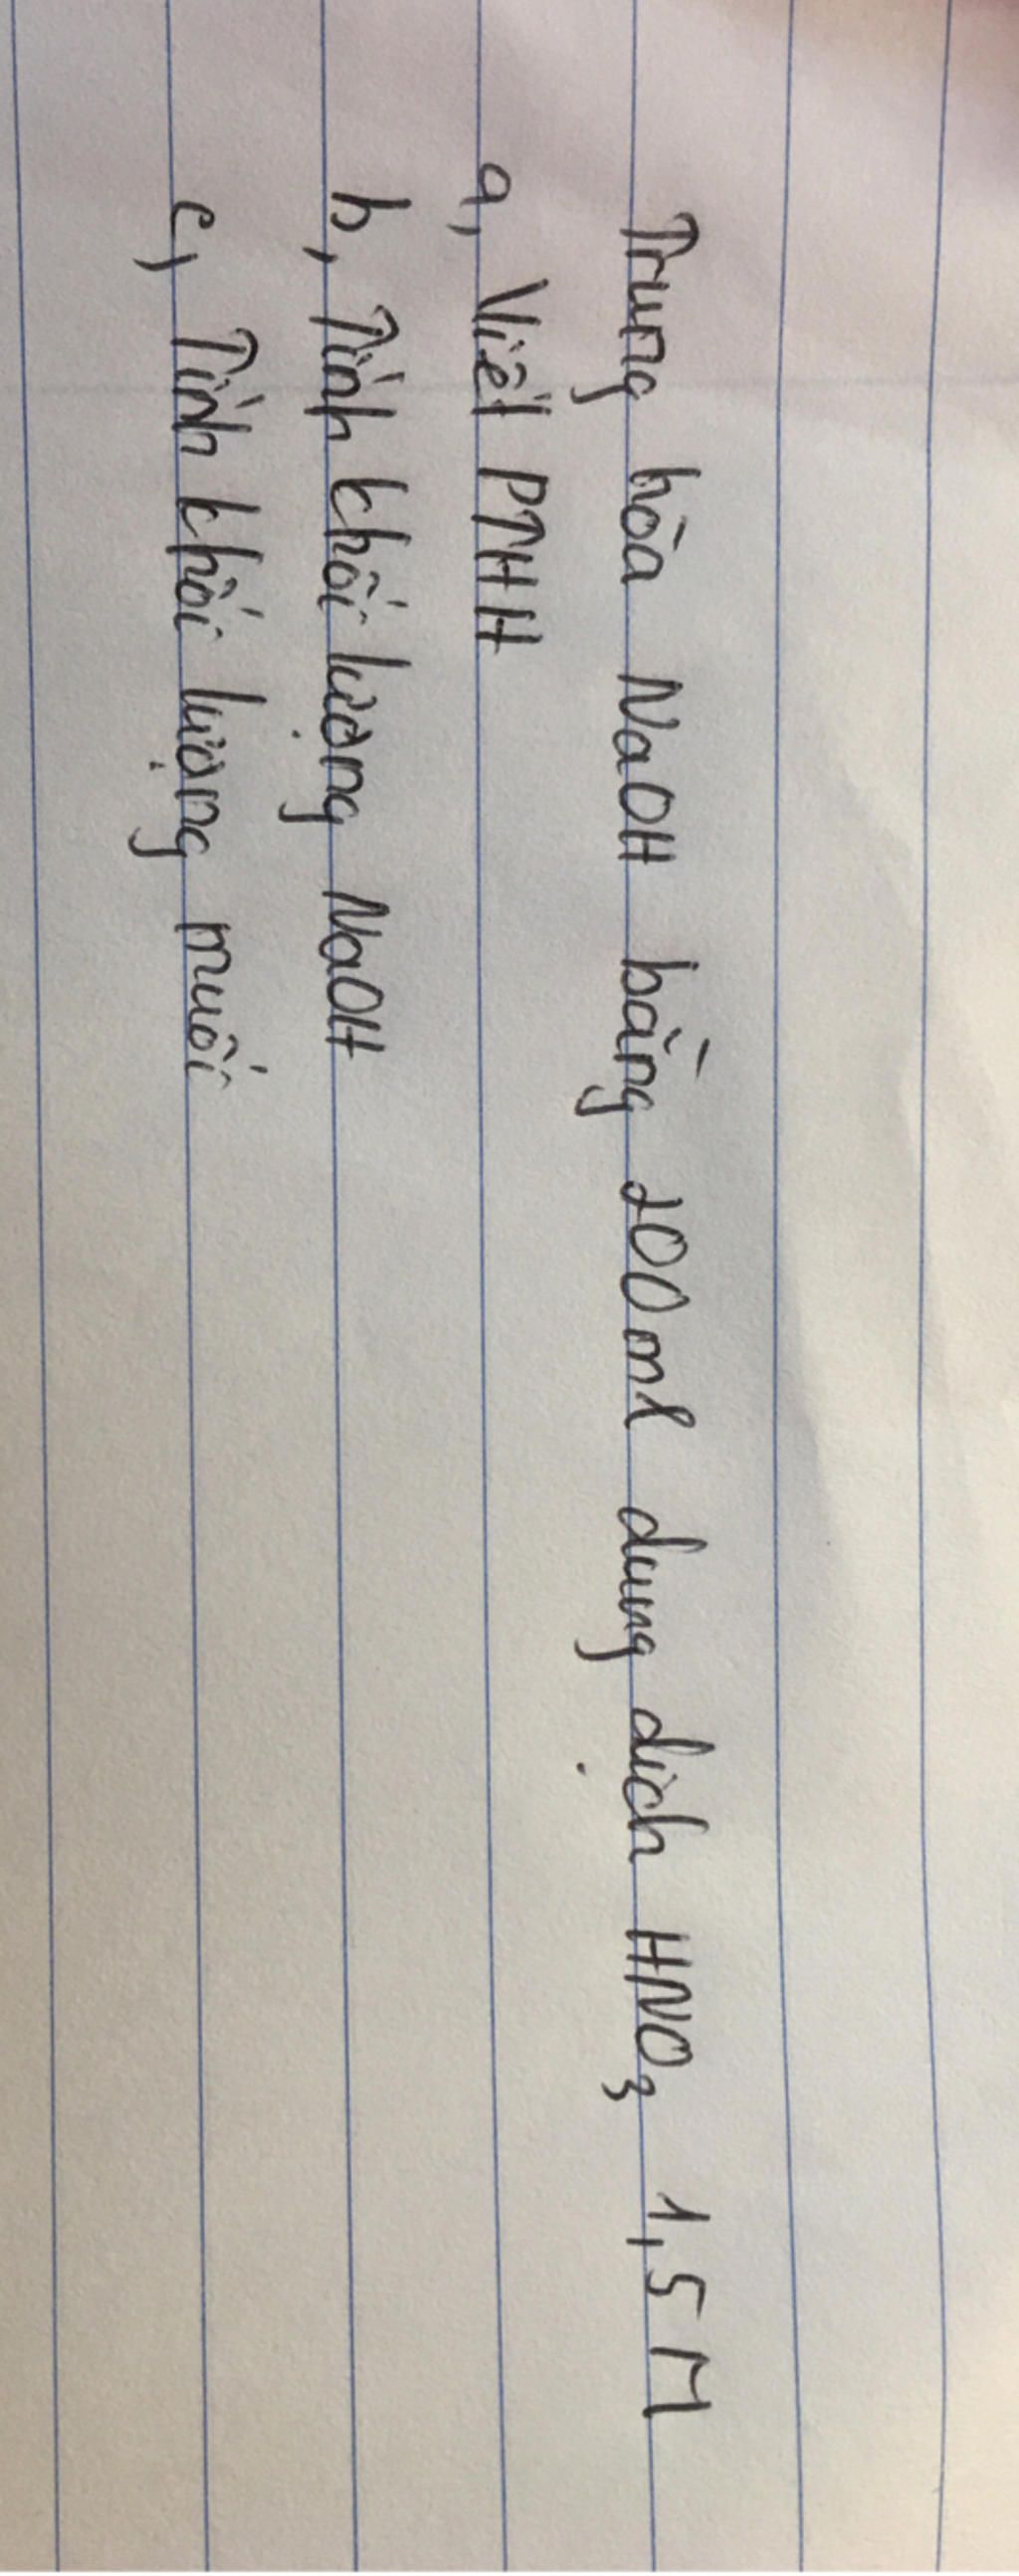 Trung hòa NaOH bằng 200ml dung dịch HNO₃ 1,5M
a, Viết PTHH
b, Tính khối lượng NaOH
c, Tính khối lượng muối